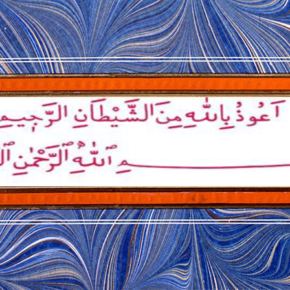 اَعُوذُ بِاللهِ مِنَ الشَّيْطَانِ الرَّجِيمِ
اللهِ الرَّحْمٰنِ